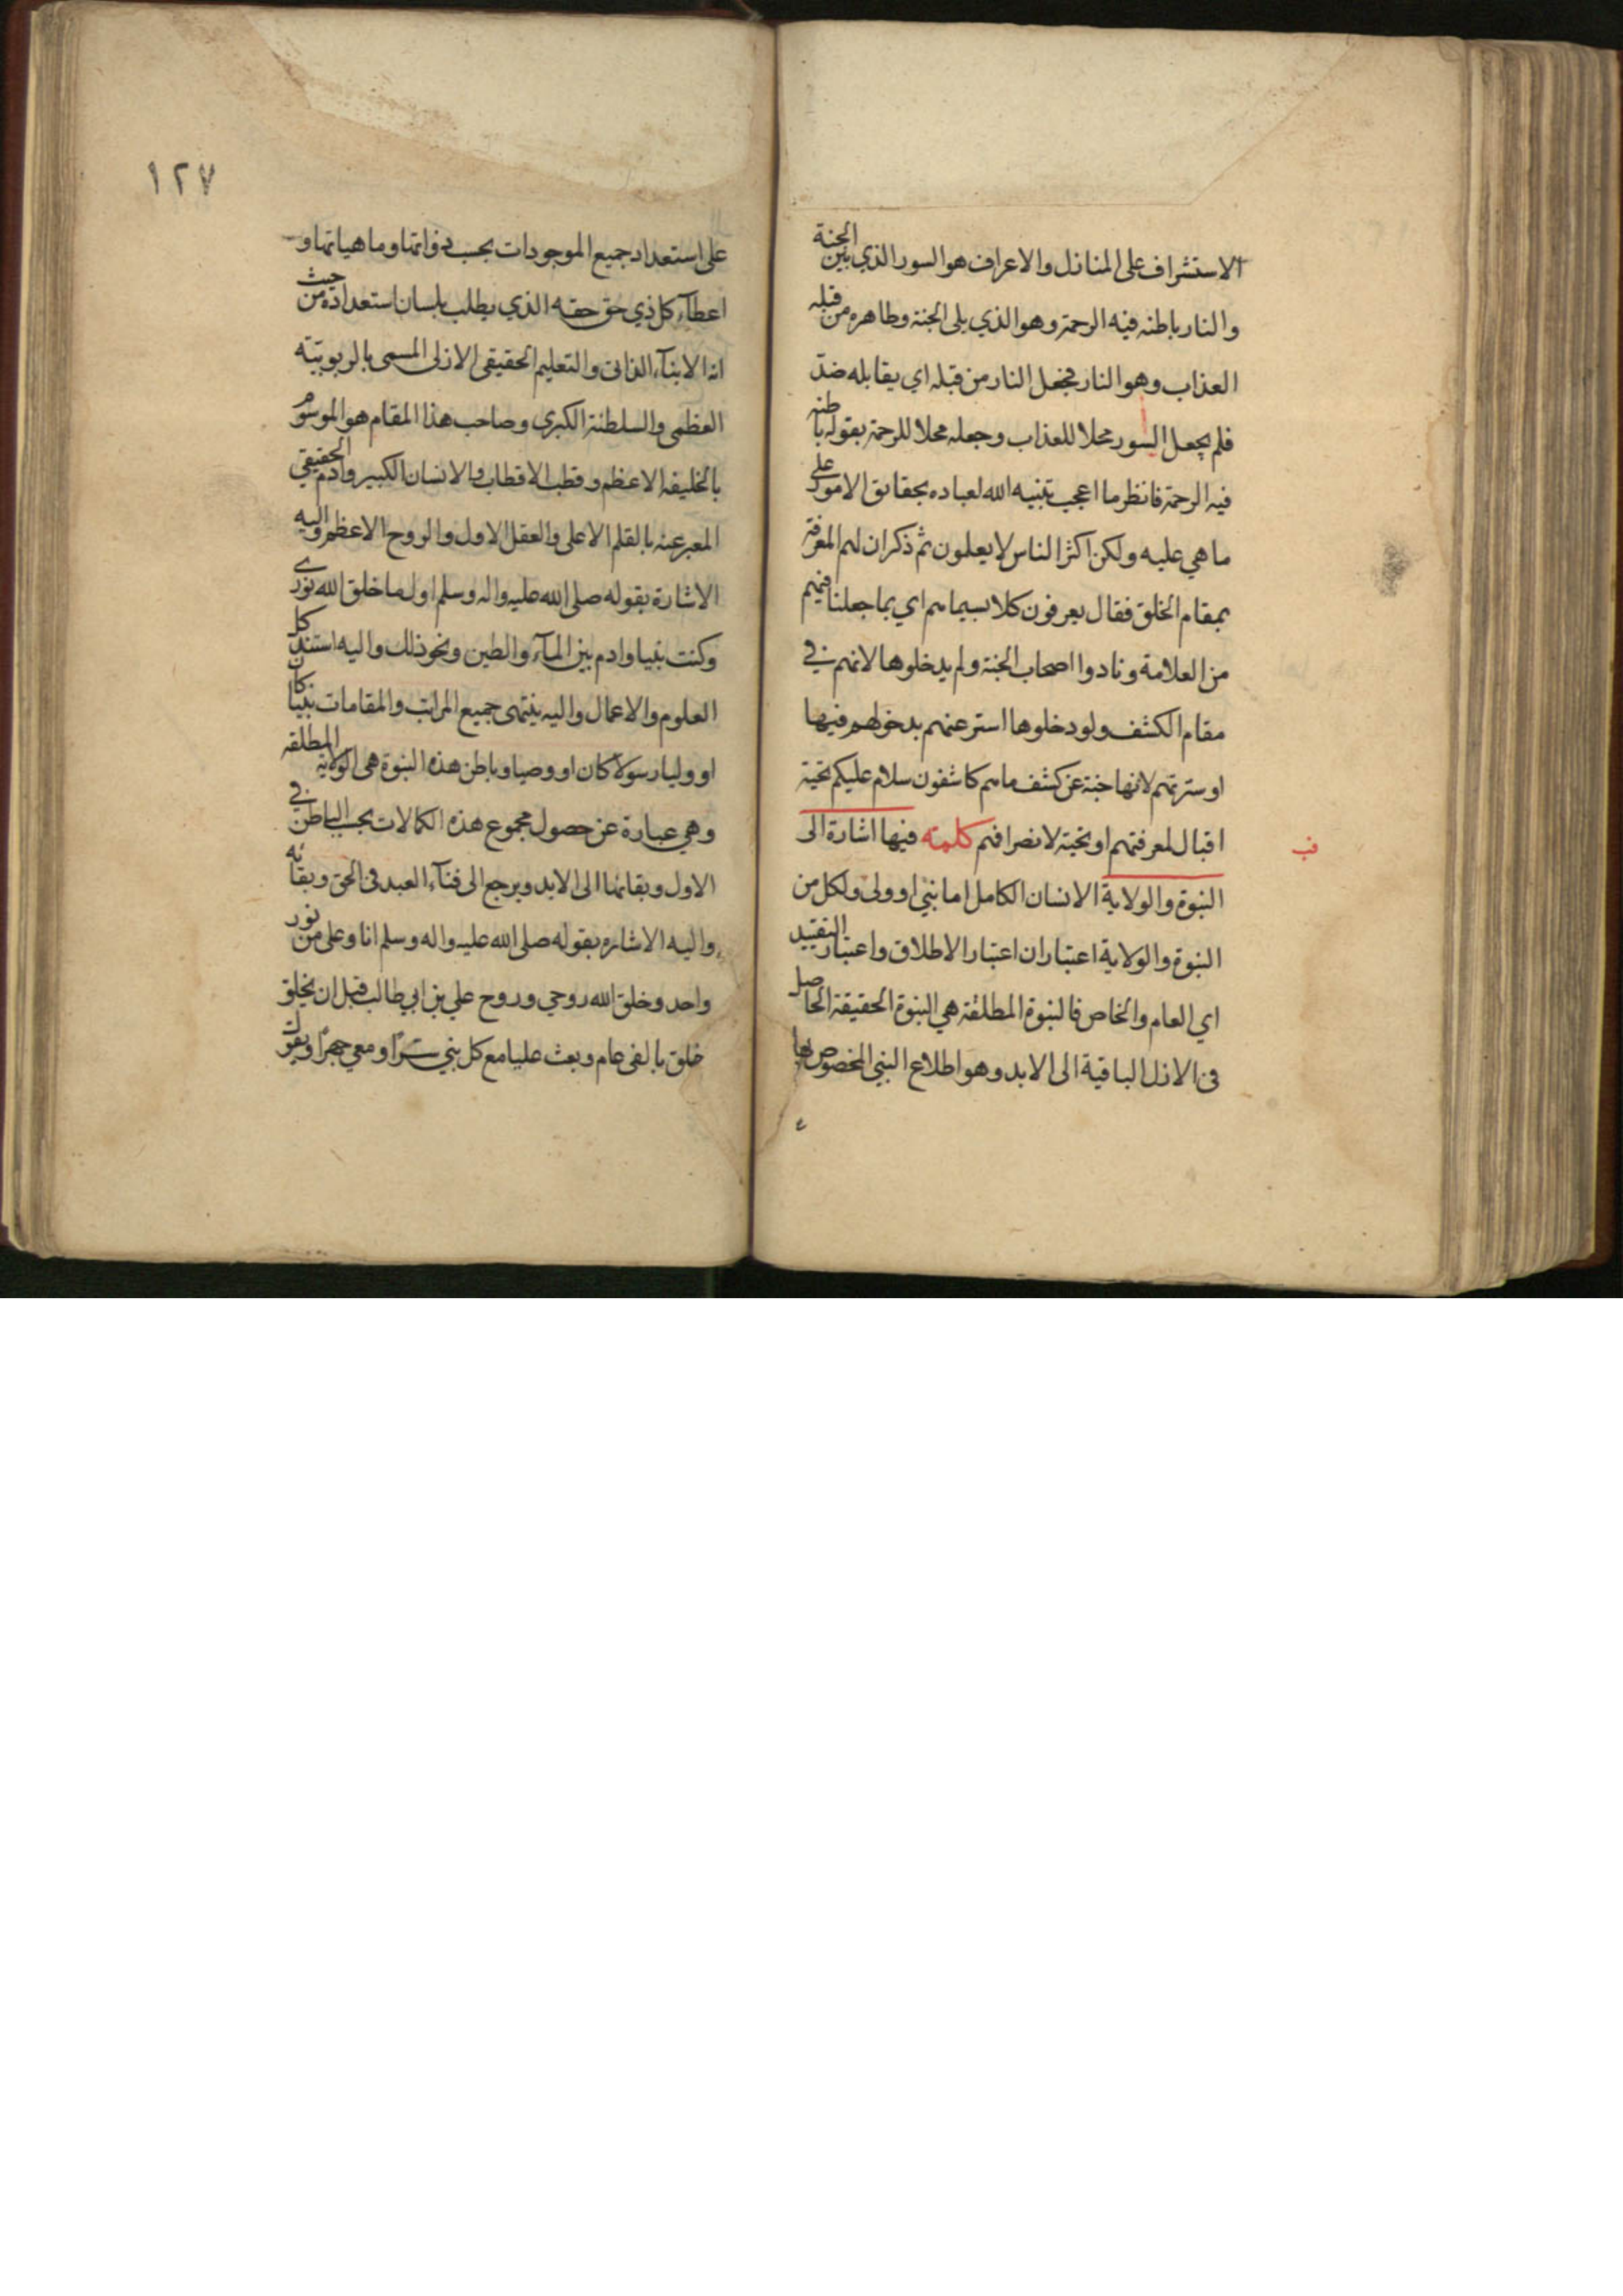 الاستشراف على المنازل والاعراف هو السور الذي بين الجنة
والنار باطنه فيه الرحمة وهو الذي يلى الجنة وظاهره من قبله
العذاب وهو النار فجعل النار من قبله اي يقابله ضد
فلم يجعل السور محلا للعذاب وجعله محلا للرحمة بقوله باطنه
فيه الرحمة فانظر ما اعجب تنبيه الله لعباده بحقائق الامور على
ما هي عليه ولكن اكثر الناس لا يعلمون ثم ذكر ان لهم المعرفة
بمقام الخلق فقال يعرفون كلا بسيماهم اي بما جعلنا فيهم
من العلامة ونادوا اصحاب الجنة ولم يدخلوها لانهم في
مقام الكشف ولو دخلوها استر عنهم بدخولهم فيها
او سترتهم لانها جنة عن كشف ما هم كاشفون سلام عليكم تحية
اقبال لمعرفتهم او تحية لانصرافهم كلمته فيها اشارة الى
قب
النبوة والولاية الانسان الكامل اما نبي او ولى ولكل من
النبوة والولاية اعتباران اعتبار الاطلاق واعتبار التقييد
اي العام والخاص فالنبوة المطلقة هي النبوة الحقيقة الحاصل
فى الازل الباقية الى الابد وهو اطلاع النبي المخصوص بها
ع
١٢٧
على استعداد جميع الموجودات بحسب ذواتها وماهياتها و
اعطاء كل ذي حق حقه الذي يطلب بلسان استعداده من حيث
انه الانباء الذاتى والتعليم الحقيقى الازلى المسمى بالربوبيته
العظمى والسلطنة الكبرى وصاحب هذا المقام هو الموسوم
بالخليفه الاعظم وقطب الاقطاب والانسان الكبير وادم الحقيقي
المعبر عنه بالقلم الاعلى والعقل الاول والروح الاعظم واليه
الاشارة بقوله صلى الله عليه واله وسلم اول ما خلق الله نوري
وكنت نبيا وادم بين الماء والطين ونحو ذلك واليه استند كل
العلوم والاعمال واليه ينتهى جميع المراتب والمقامات نبيا كان
او وليا رسولا كان او وصيا وباطن هذه النبوة هى الولاية المطلقه
وهي عبارة عن حصول مجموع هذه الكمالات بحسب الباطن في
الاول وبقائها الى الابد ويرجع الى فناء العبد فى الحق وبقائه
واليه الاشاره بقوله صلى الله عليه واله وسلم انا وعلى من نور
واحد وخلق الله روحي وروح علي بن ابي طالب قبل ان يخلق
خلق بالفى عام وبعث عليا مع كل نبي سرًا ومعي جهرًا ويقول